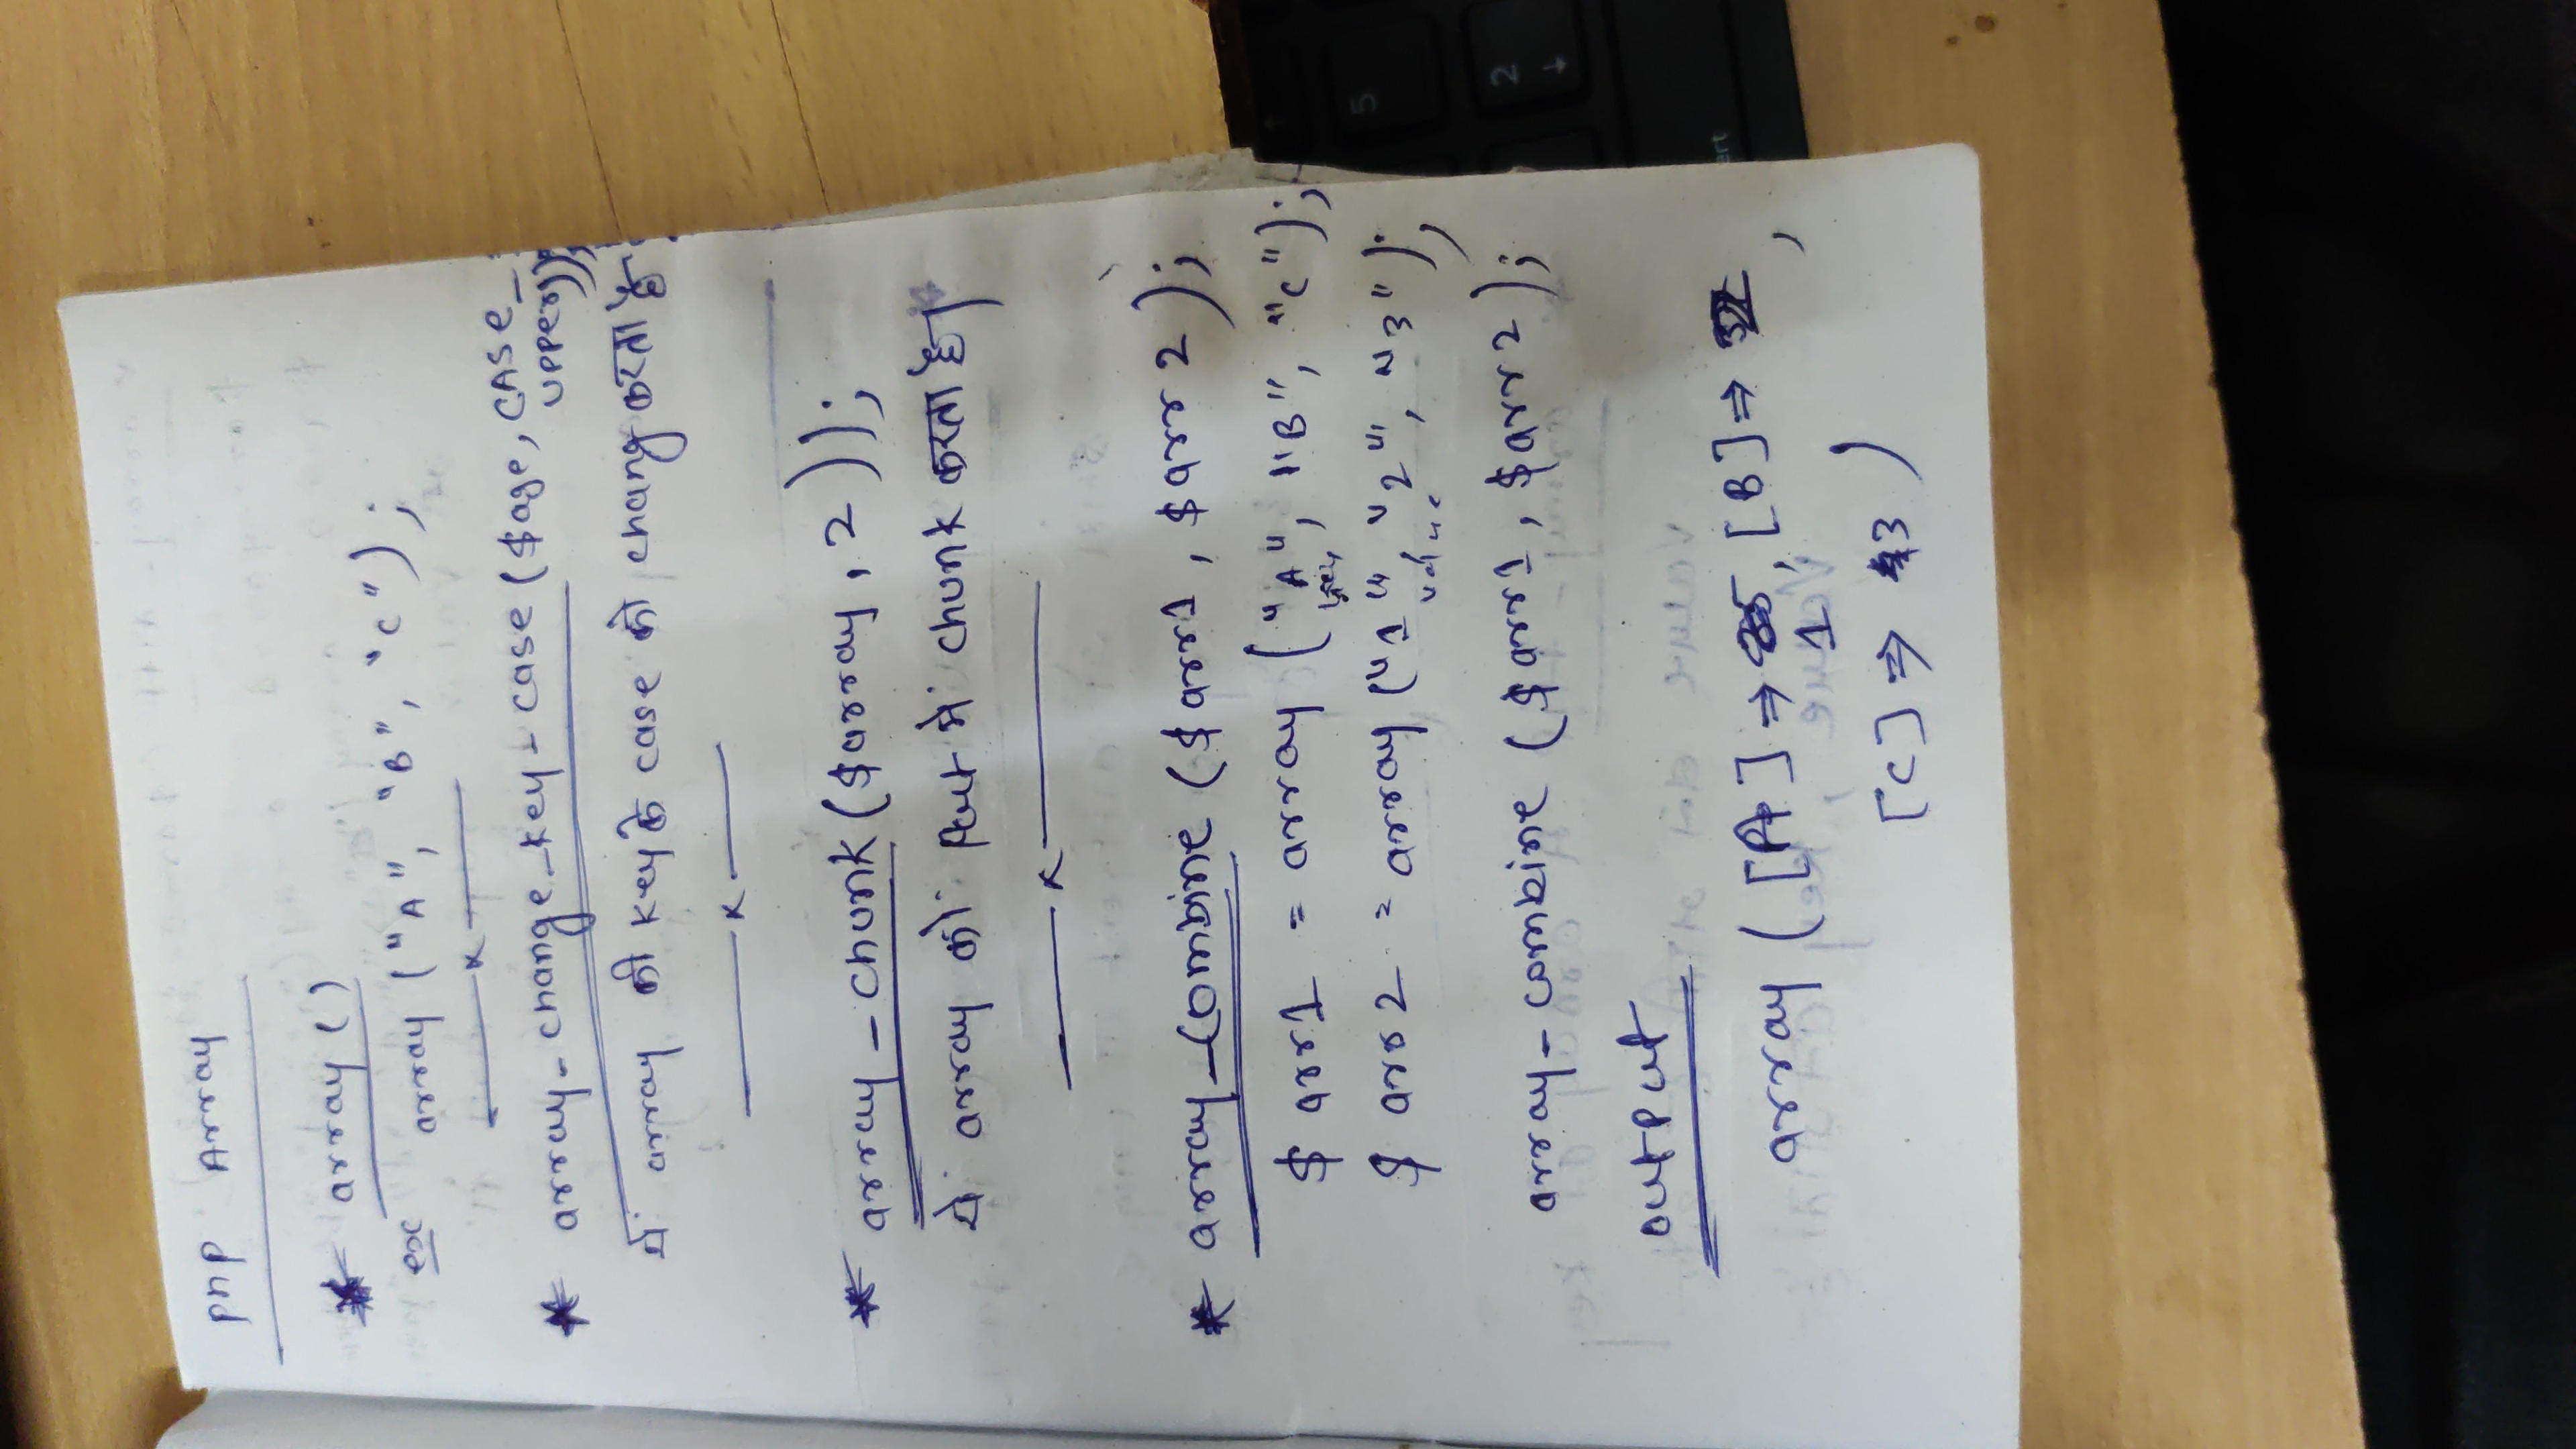 PHP Array
* array ()
ex array ("A", "B", "C");
x
* array_change_key_case ($age, CASE_
UPPER));
ये array की key के case को chang करता है
x
* array_chunk ($array, 2));
ये array को Part में chunk करता है।
x
* array_combine ($arr1, $arr2);
$ arr1 = array ("A", "B", "C");
key
$ arr2 = array ("1", "2", "3");
value
array_combine ($arr1, $arr2);
output
array ([A] => , [B] => 2,
1
[C] => 3)
5
2
↓